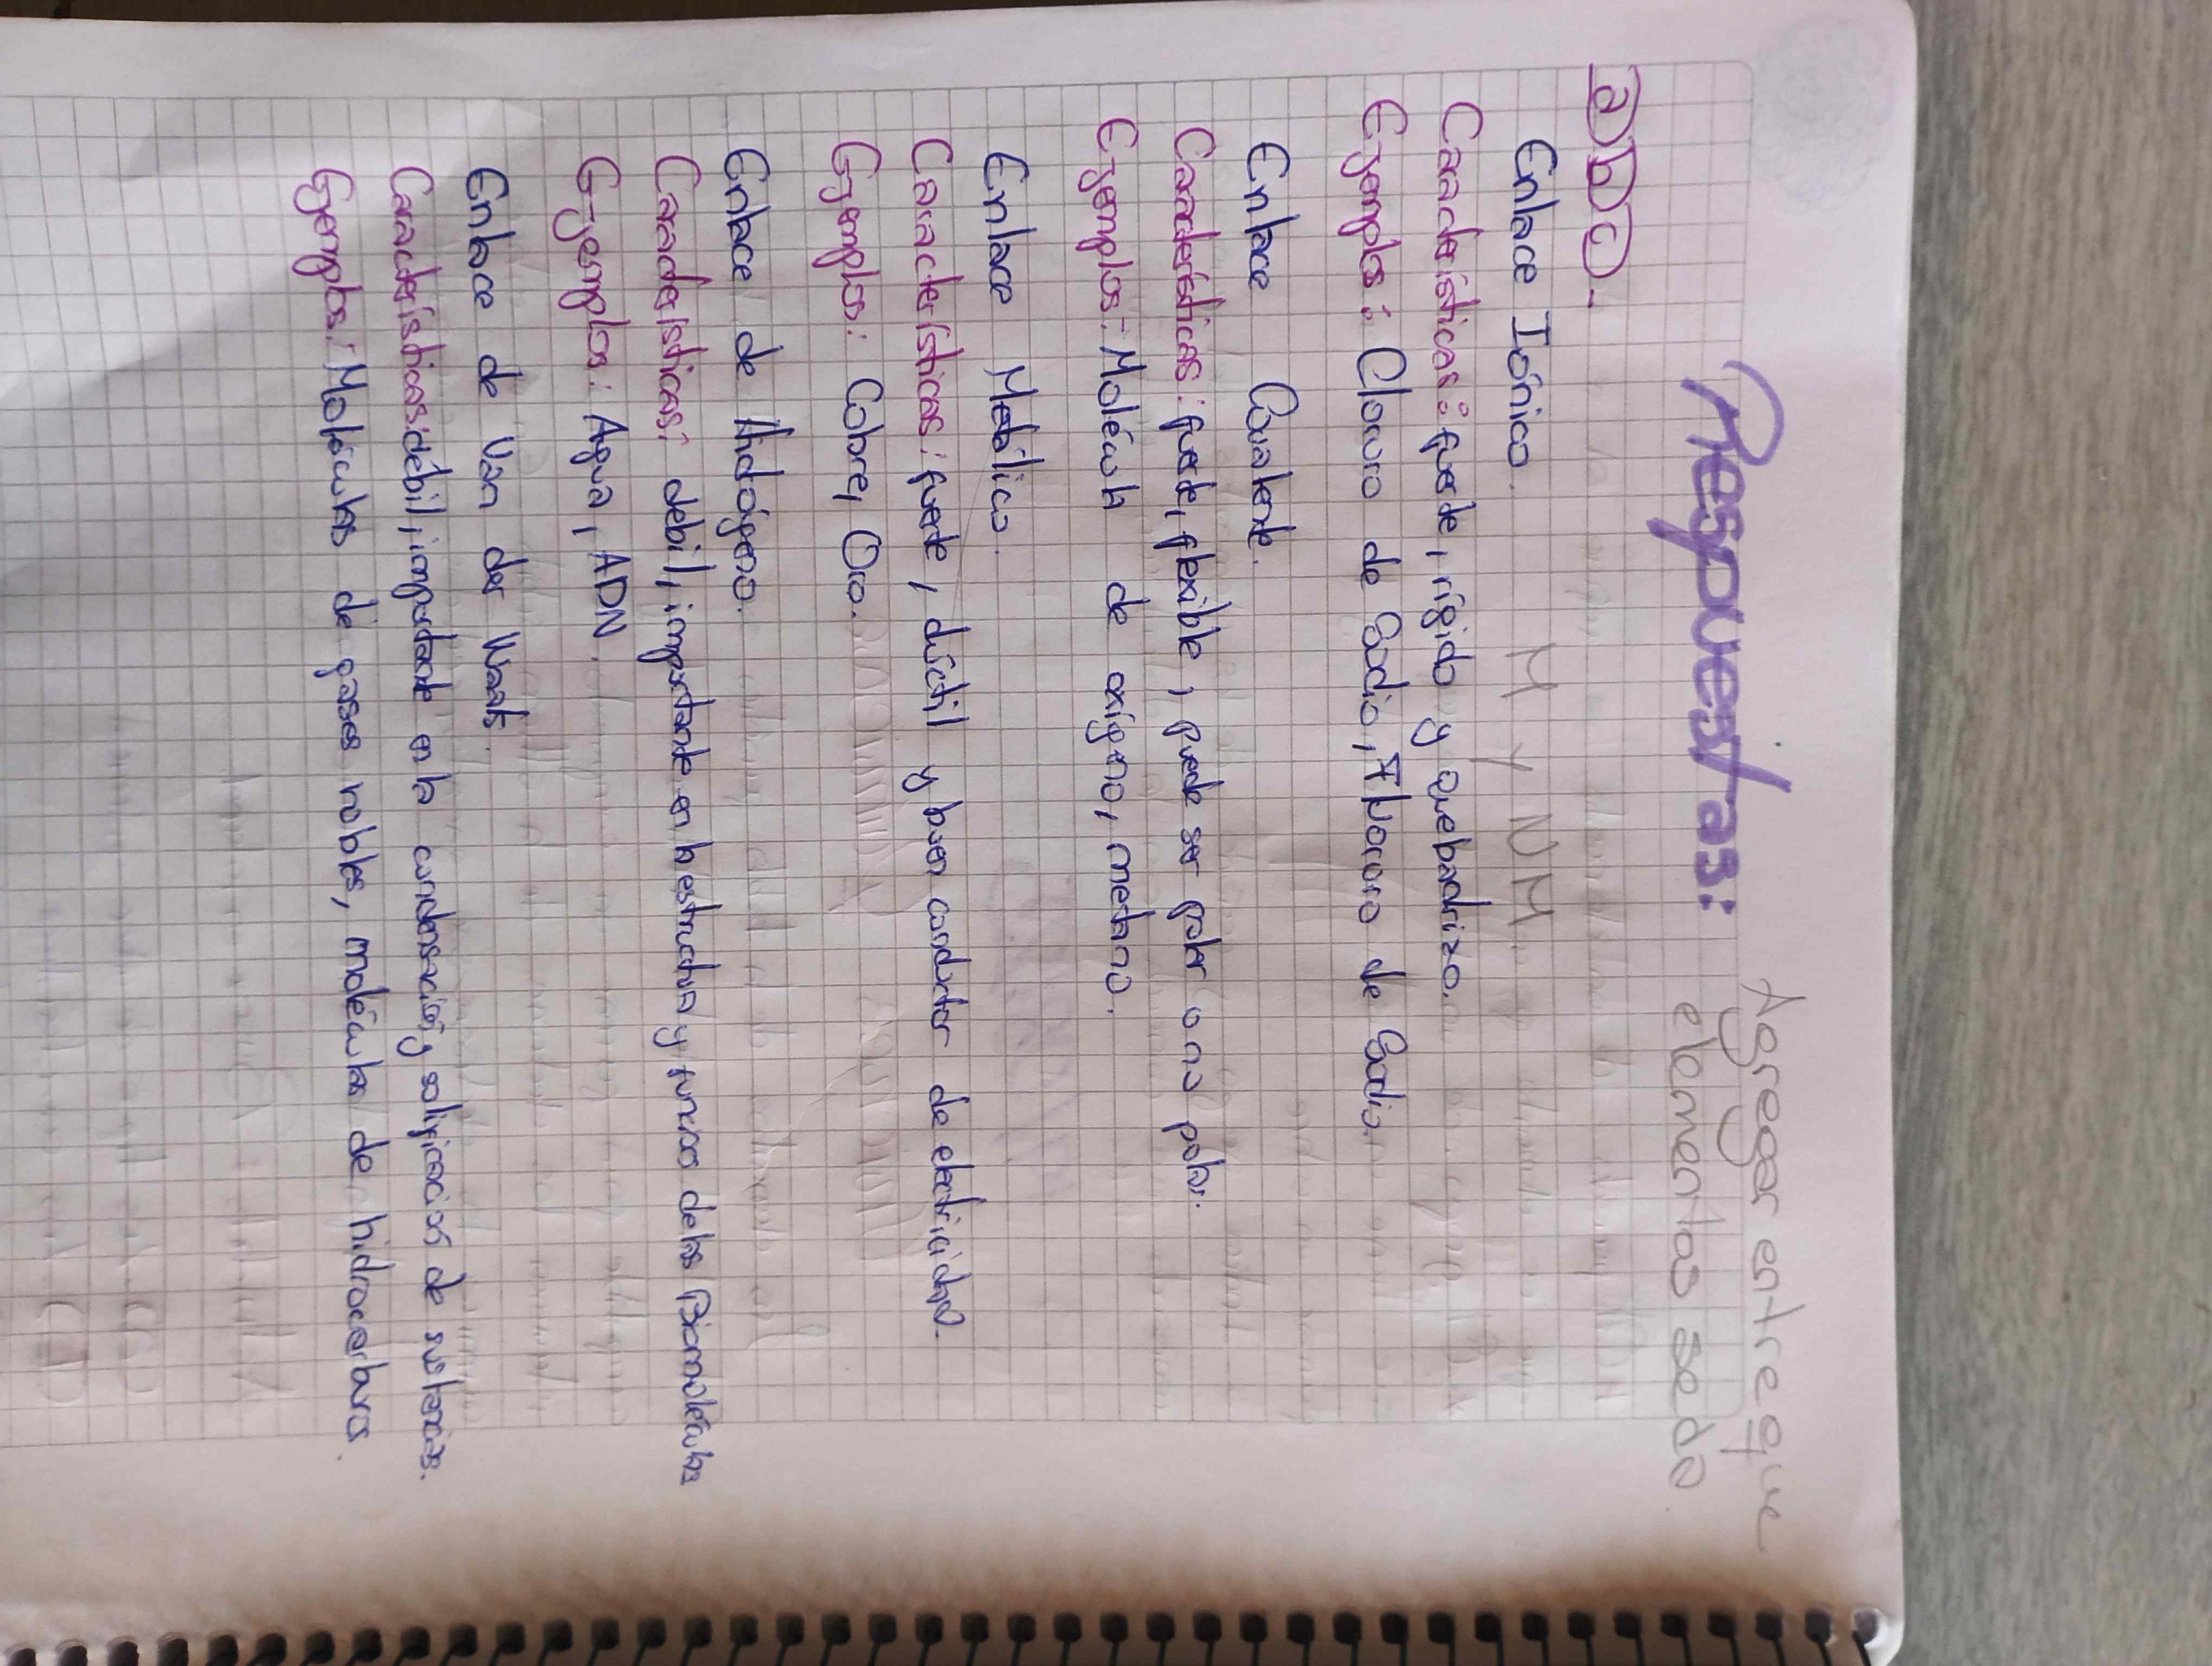 Respuestas:
Agregar entre que
elementos se da
a) b) c).-
Enlace Iónico. M y NM.
Características: fuerte, rígido y quebradrizo.
Ejemplos: Cloruro de Sodio, Fluoruro de Sodio.
Enlace Covalente.
Características: fuerte, flexible, puede ser polar o no polar.
Ejemplos: Molécula de oxígeno, metano.
Enlace Metálico.
Características: fuerte, dúctil y buen conductor de electricidad.
Ejemplos: Cobre, Oro.
Enlace de Hidrógeno.
Características: debil, importante en la estructura y funcion de las Biomoléculas
Ejemplos: Agua, ADN.
Enlace de Van der Waals.
Características: débil, importante en la condensación y solificación de sustancias.
Ejemplos: Moléculas de gases nobles, moléculas de hidrocarburos.